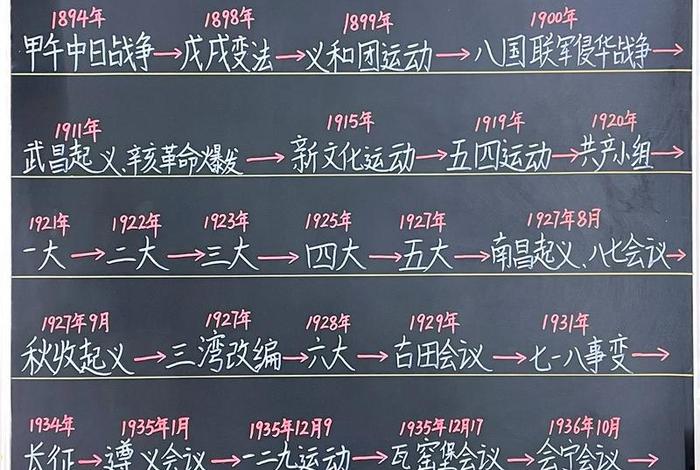 1894年 1898年 1899年 1900年
甲午中日战争→戊戌变法→义和团运动→八国联军侵华战争→
1911年 1915年 1919年 1920年
武昌起义、辛亥革命爆发→新文化运动→五四运动→共产小组→
1921年 1922年 1923年 1925年 1927年 1927年8月
一大→二大→三大→四大→五大→南昌起义、八七会议→
1927年9月 1927年 1928年 1929年 1931年
秋收起义→三湾改编→六大→古田会议→七一八事变→
1934年 1935年1月 1935年12月9 1935年12月17 1936年10月
长征→遵义会议→一二九运动→瓦窑堡会议→会宁会议→